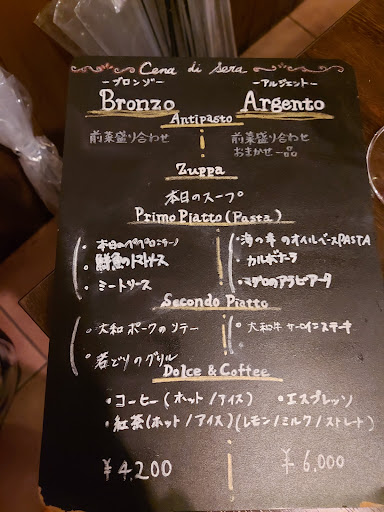 Cena di sera
ーブロンゾー
ーアルジェントー
Bronzo
Argento
Antipasto
前菜盛り合わせ
前菜盛り合わせ
おまかせ一品
Zuppa
本日のスープ
Primo Piatto (Pasta)
・本日のペペロンチーノ
・鮮魚のトマトソース
・ミートソース
・海の幸のオイルベースPASTA
・カルボナーラ
・マグロのアラビアータ
Secondo Piatto
・大和ポークのソテー
・若どりのグリル
・大和牛サーロインステーキ
Dolce & Coffee
・コーヒー(ホット/アイス)
・エスプレッソ
・紅茶(ホット/アイス)(レモン/ミルク/ストレート)
¥4,200
¥6,000